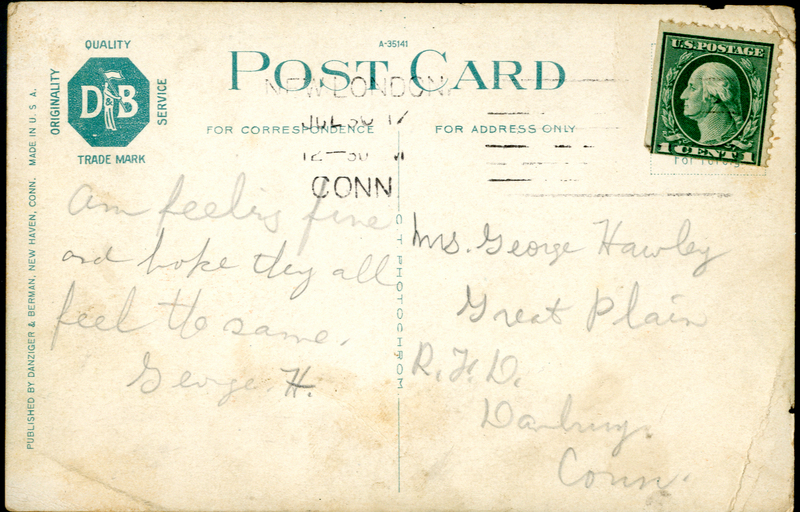 A-35141
QUALITY
ORIGINALITY
D&B
SERVICE
TRADE MARK
POST CARD
NEW LONDON
JUL 30 17
12—30 M
CONN
FOR CORRESPONDENCE
FOR ADDRESS ONLY
U.S. POSTAGE
1 CENT 1
PUBLISHED BY DANZIGER & BERMAN, NEW HAVEN, CONN. MADE IN U. S. A.
C T PHOTOCHROM
Am feeling fine
and hope they all
feel the same.
George H.
Mrs. George Hawley
Great Plain
R.F.D.
Danbury.
Conn.